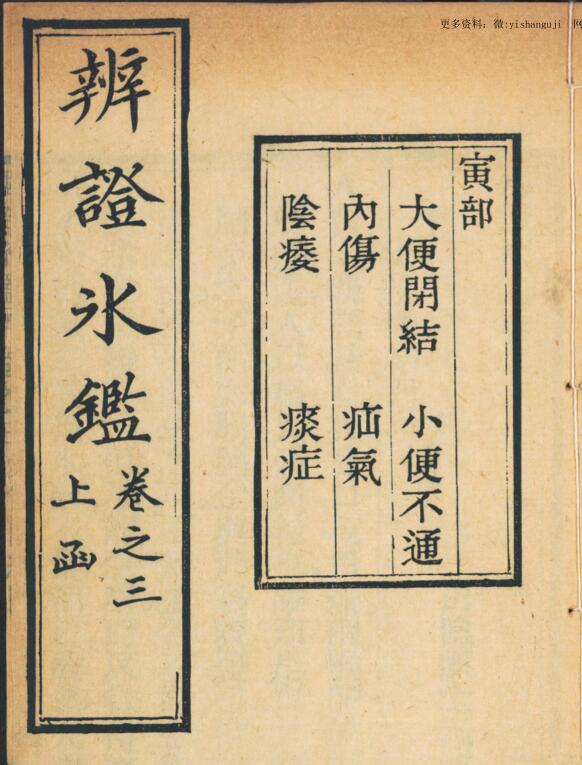 更多资料：微:yishanguji 网
寅部
大便閉結 小便不通
內傷 疝氣
陰痿 痰症
辨證氷鑑
卷之三
上函